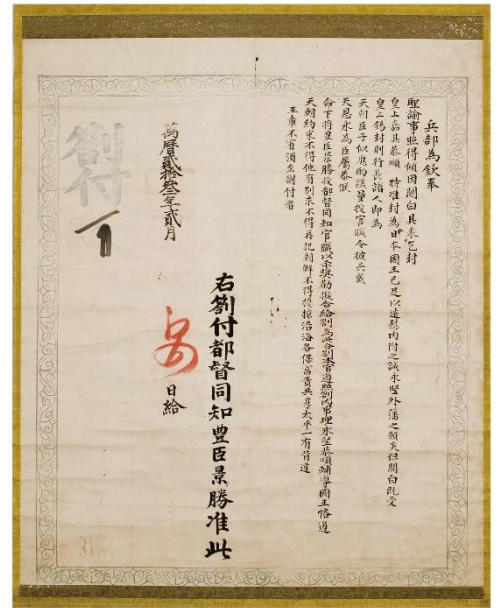 兵部為欽奉
聖諭事照得頃因関白具表乞封
皇上嘉其恭順特准封為日本國王已足以遠慰内附之誠永堅外藩之願矣但関白既受
皇上錫封則行長諸人即為
天朝臣子似應酌議量授官職令彼共戴
天恩永為臣屬恭候
命下將豊臣景勝授都督同知官職以示奬勸擬合給劄為此合劄本官遵照劄内事理永堅恭順輔導國王恪遵
天朝約束不得他有別求不得再犯朝鮮不得擾掠沿海各保富貴共享太平一有背違
王章不宥須至劄付者
右劄付都督同知豊臣景勝准此
萬曆貳拾叁年貳月
日給
劄付